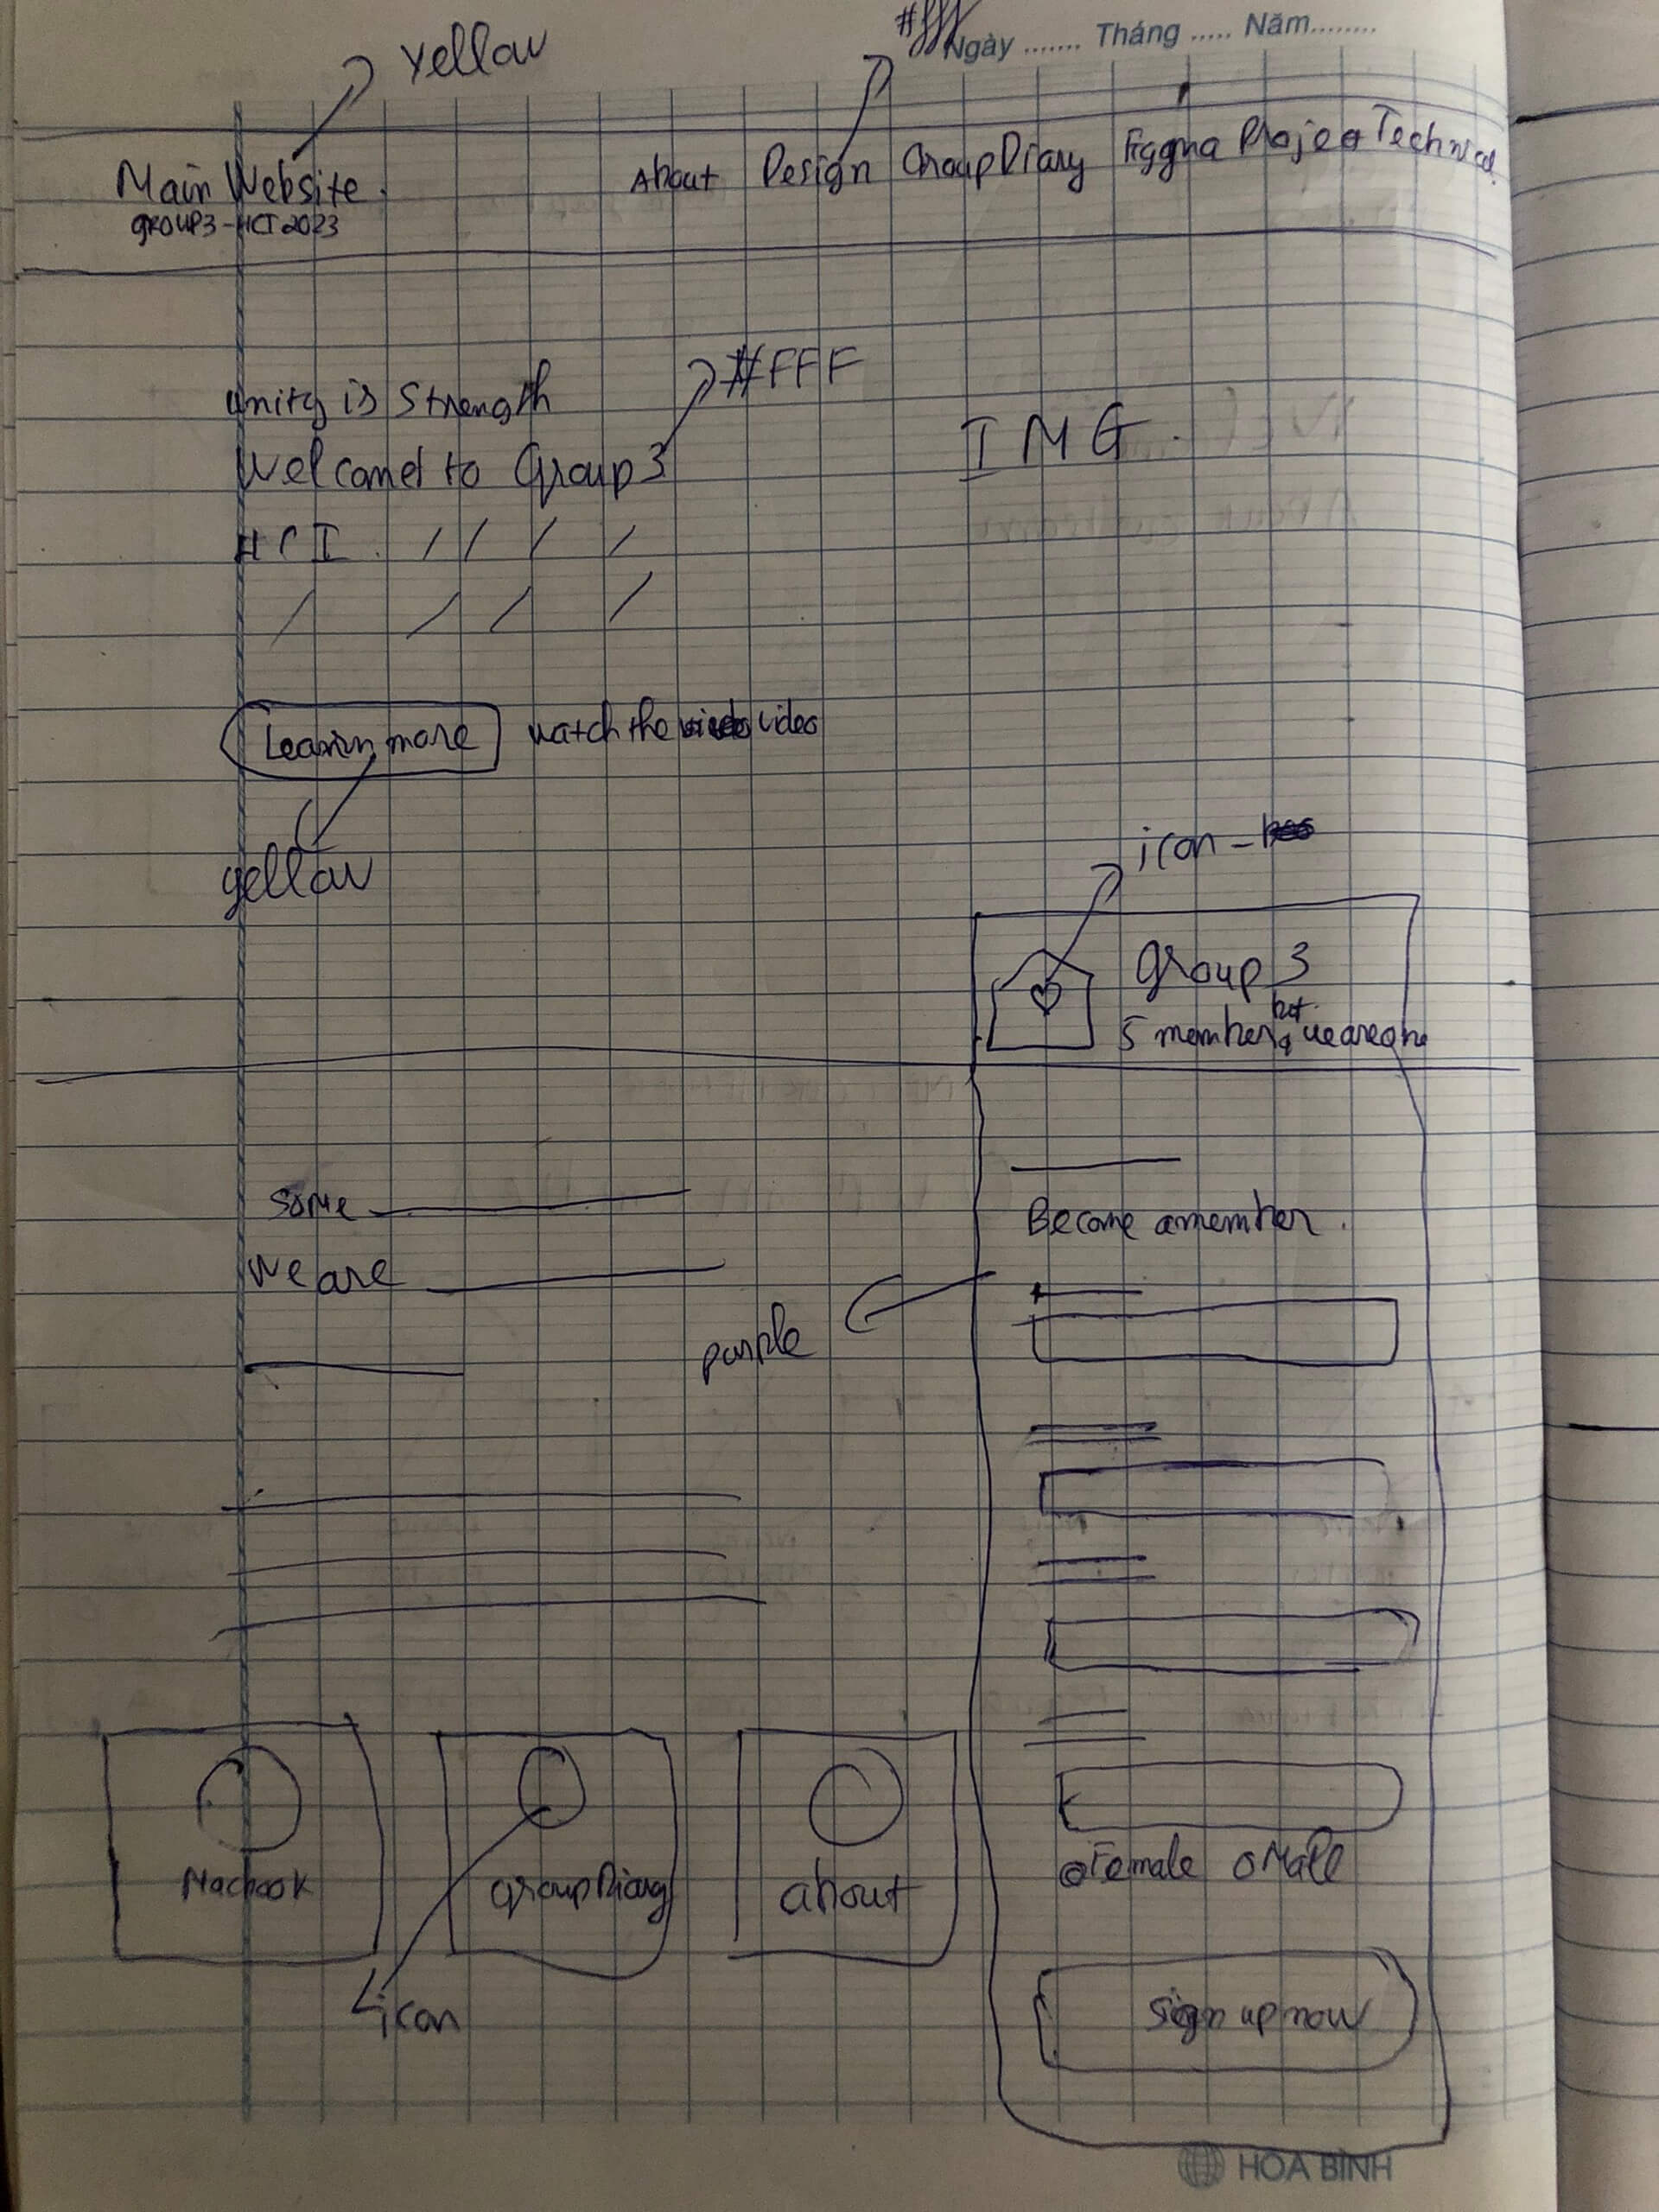 yellow
#fff
Ngày ....... Tháng ..... Năm........
Main Website.
GROUP3-HCI 2023
About Design GroupDiary Figgma Project Technical
Unity is Strength
#FFF
Welcomed to Group 3
HCI.
IMG.
Learn more
watch the video
yellow
icon -
Group 3
5 member, but we are one
Some
We are
purple
Become a member.
Macbook
group Diary
about
icon
Female Male
Sign up now
HOA BÌNH